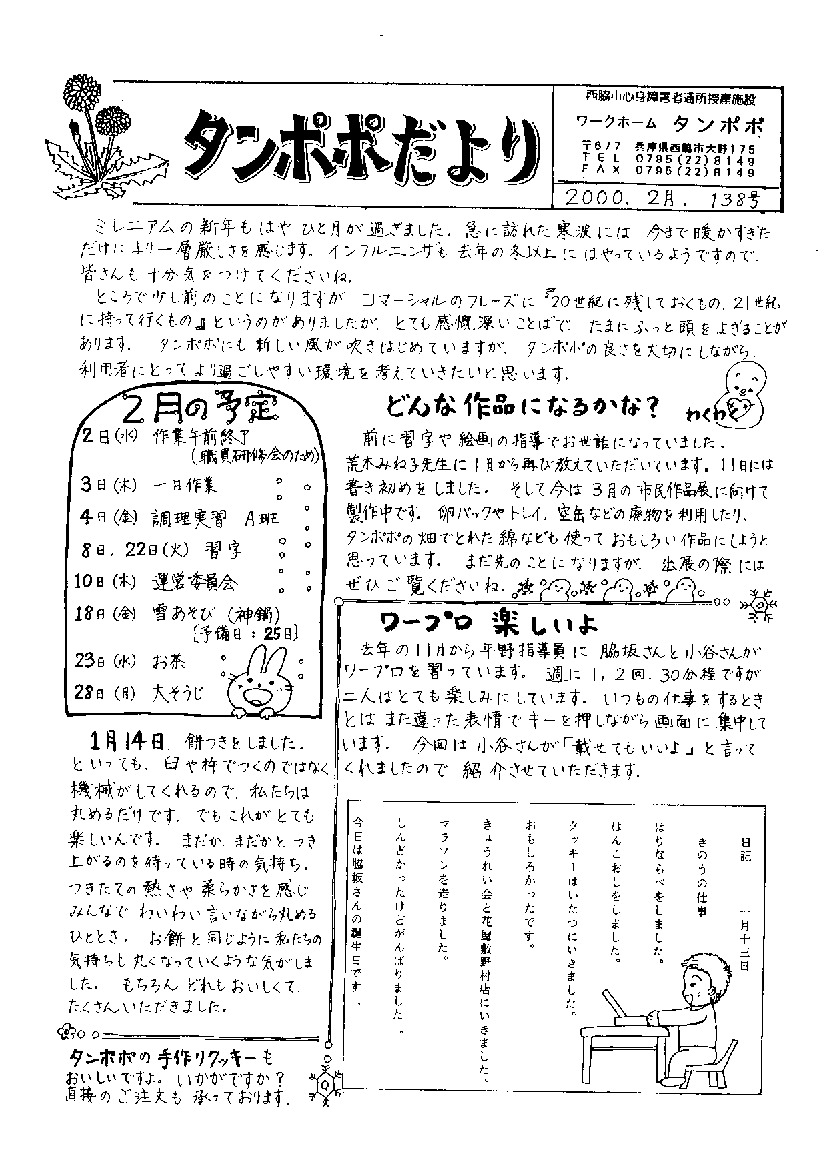 タンポポだより
西脇小心身障害者通所授産施設
ワークホーム タンポポ
〒677 兵庫県西脇市大野175
TEL 0795(22)8149
FAX 0795(22)8149
2000. 2月. 138号
ミレニアムの新年もはや ひと月が過ぎました。急に訪れた寒波には 今まで暖かすぎた
だけに より一層厳しさを感じます。インフルエンザも去年の冬以上にはやっているようですので、
皆さんも十分気をつけてくださいね。
ところで少し前のことになりますが コマーシャルのフレーズに『20世紀に残しておくもの、21世紀
に持って行くもの』というのがありましたが、とても感慨深いことばで たまにふっと頭をよぎることが
あります。 タンポポにも新しい風が吹きはじめていますが、タンポポの良さを大切にしながら、
利用者にとってより過ごしやすい環境を考えていきたいと思います。
2月の予定
2日(水) 作業午前終了
(職員研修会のため)
3日(木) 一日作業
4日(金) 調理実習 A班
8日、22日(火) 習字
10日(木) 運営委員会
18日(金) 雪あそび (神鍋)
[予備日:25日]
23日(水) お茶
28日(月) 大そうじ
どんな作品になるかな?
わくわく
前に習字や絵画の指導でお世話になっていました、
荒木みね子先生に1月から再び教えていただいています。11日には
書き初めをしました。 そして今は3月の市民作品展に向けて
製作中です。 卵パックやトレイ、空缶などの廃物を利用したり、
タンポポの畑でとれた綿なども使って おもしろい作品にしようと
思っています。 まだ先のことになりますが、出展の際には
ぜひご覧くださいね。
ワープロ 楽しいよ
去年の11月から平野指導員に 脇坂さんと小谷さんが
ワープロを習っています。 週に1,2回、30分程ですが
二人はとても楽しみにしています。いつもの仕事をするとき
とは また違った表情でキーを押しながら画面に集中して
います。 今回は小谷さんが「載せてもいいよ」と言って
くれましたので 紹介させていただきます。
日記 一月十三日
きのうの仕事
はりならべをしました。
はんこおしをしました。
クッキーはいたつにいきました。
おもしろかったです。
きょうれい会と花屋敷野村店にいきました。
マラソンを走りました。
しんどかったけどがんばりました。
今日は脇坂さんの誕生日です。
1月14日、餅つきをしました。
といっても、臼や杵でつくのではなく
機械がしてくれるので、私たちは
丸めるだけです。でもこれがとても
楽しいんです。 まだか、まだかと つき
上がるのを待っている時の気持ち、
つきたての熱さや柔らかさを感じ
みんなで わいわい言いながら丸める
ひととき。 お餅と同じように私たちの
気持ちも丸くなっていくような気がしま
した。 もちろん どれもおいしくて、
たくさんいただきました。
タンポポの手作りクッキーも
おいしいですよ。いかがですか?
直接のご注文も 承っております。